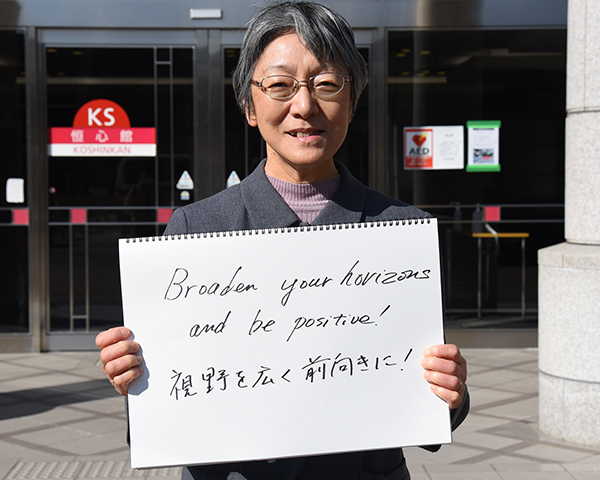 KS
恒心館
KOSHINKAN
AED
Broaden your horizons
and be positive!
視野を広く前向きに!